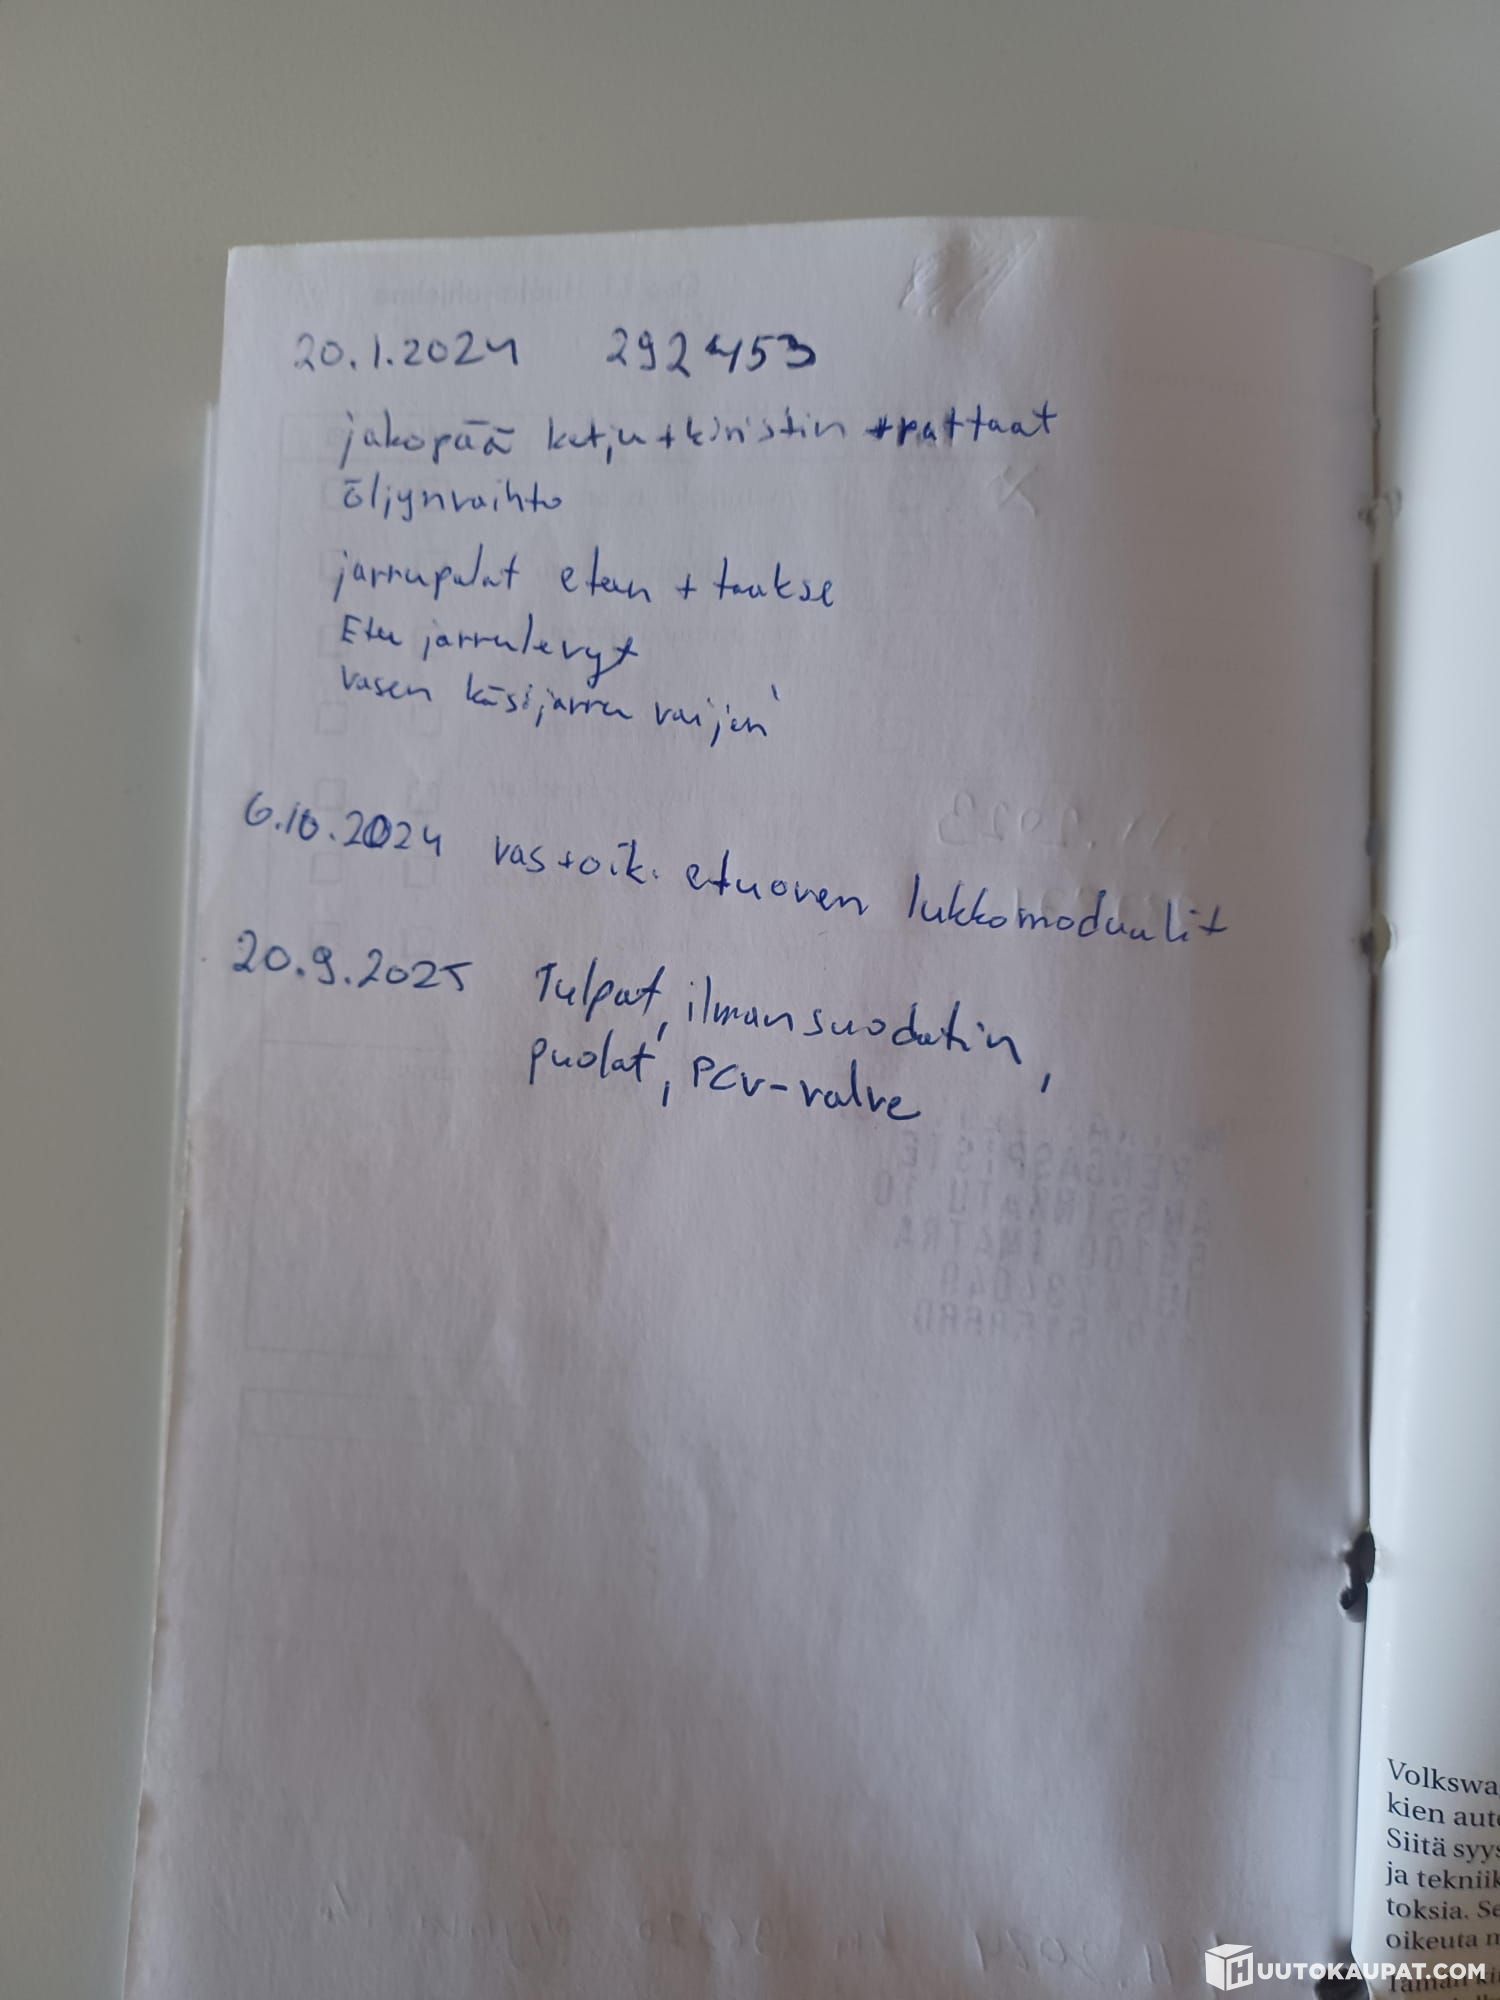 20.1.2024 292453
jakopää ketju+kiristin +rattaat
öljynvaihto
jarrupalat eteen + taakse
Etu jarrulevyt
vasen käsijarru vaijeri
6.10.2024 vas+oik. etuoven lukkomoduulit
20.9.2025 Tulpat, ilmansuodatin,
puolat, PCV-valve
Volkswa
kien auto
Siitä syys
ja tekniik
toksia. Se
oikeuta m
HUUTOKAUPAT.COM